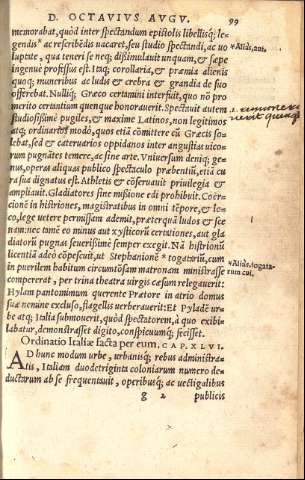 D. OCTAVIVS AVGV. 99
memorabat, quòd inter spectandum epistolis libellisq́; le-
gendis* ac rescribẽdis uacaret, seu studio spectandi, ac uo
luptate, qua teneri se neq; dißimulauit unquam, & sæpe
ingenuè professus est. Itaq; corollaria, & præmia alienis
quoq; muneribus ac ludis & crebra & grandia de suo
offerebat. Nulliq́; Græco certamini interfuit, quo nõ pro
merito certantium quenque honorauerit. Spectauit autem
studiosißimè pugiles, & maxime Latinos, non legitimos
atq; ordinarios modò, quos etiã cõmittere cũ Græcis so-
lebat, sed & cateruarios oppidanos inter angustias uico-
rum pugnãtes temerè, ac sine arte. Vniuersum deniq; ge-
nus, operas aliquas publico spectaculo præbentiũ, etiã cu
ra sua dignatus est. Athletis & cõseruauit priuilegia &
ampliauit. Gladiatores sine mißione edi prohibuit. Coër-
cionẽ in histriones, magistratibus in omni tẽpore, & lo-
co, lege uetere permissam ademit, præterquã ludos & sce
nam: nec tamẽ eo minus aut xysticorũ certationes, aut gla
diatorũ pugnas seuerißimè semper exegit. Nã histrionũ
licentiã adeò cõpescuit, ut Stephanionẽ * togatariũ, cum
in puerilem habitum circumtõsam matronam ministrasse
comperisset, per trina theatra uirgis cæsum relegauerit:
Hylam pantomimum querente Prætore in atrio domus
suæ nemine excluso, flagellis uerberauerit: Et Pyladẽ ur-
be atq; Italia submouerit, quòd spectatorem, à quo exibi-
labatur, demonstrasset digito, conspicuumq́; fecisset.
Ordinatio Italiæ facta per eum. CAP. XLVI.
AD hunc modum urbe, urbanisq́; rebus administra-
tis, Italiam duodetriginta coloniarum numero de-
ductarum ab se frequentauit, operibusq́; ac uectigalibus
g 2 publicis
*Aliâs, aut.
*Aliâs, togata-
rum cui.